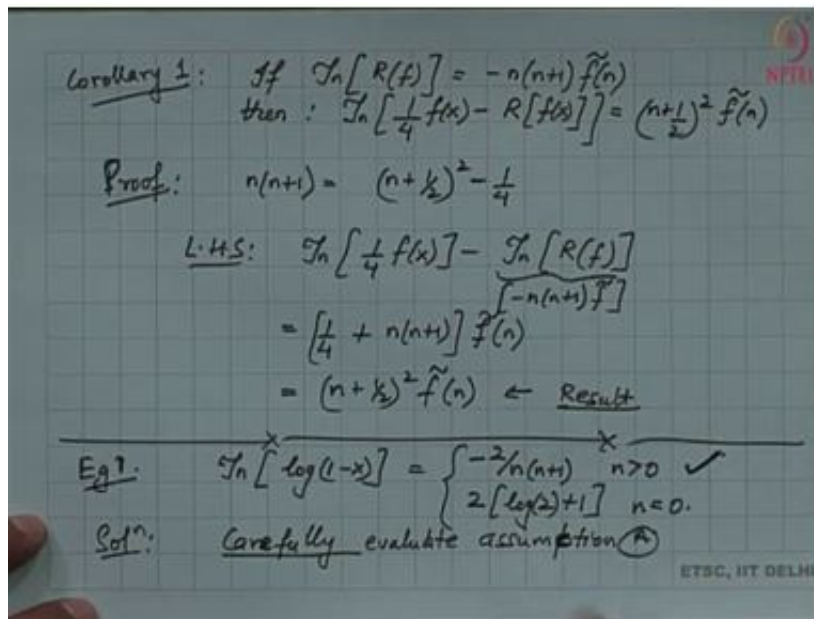 Corollary 1: If 𝒯n[R(f)] = -n(n+1) f̃(n)
then: 𝒯n[1/4 f(x) - R[f(x)]] = (n+1/2)² f̃(n)
Proof: n(n+1) = (n+1/2)² - 1/4
L.H.S: 𝒯n[1/4 f(x)] - 𝒯n[R(f)]
[-n(n+1) f̃]
= [1/4 + n(n+1)] f̃(n)
= (n+1/2)² f̃(n) ← Result
Eg 1. 𝒯n[log(1-x)] = { -2/n(n+1) n>0 ✓
2[log(2)+1] n=0.
Solⁿ: Carefully evaluate assumption Ⓐ
NPTEL
ETSC, IIT DELHI